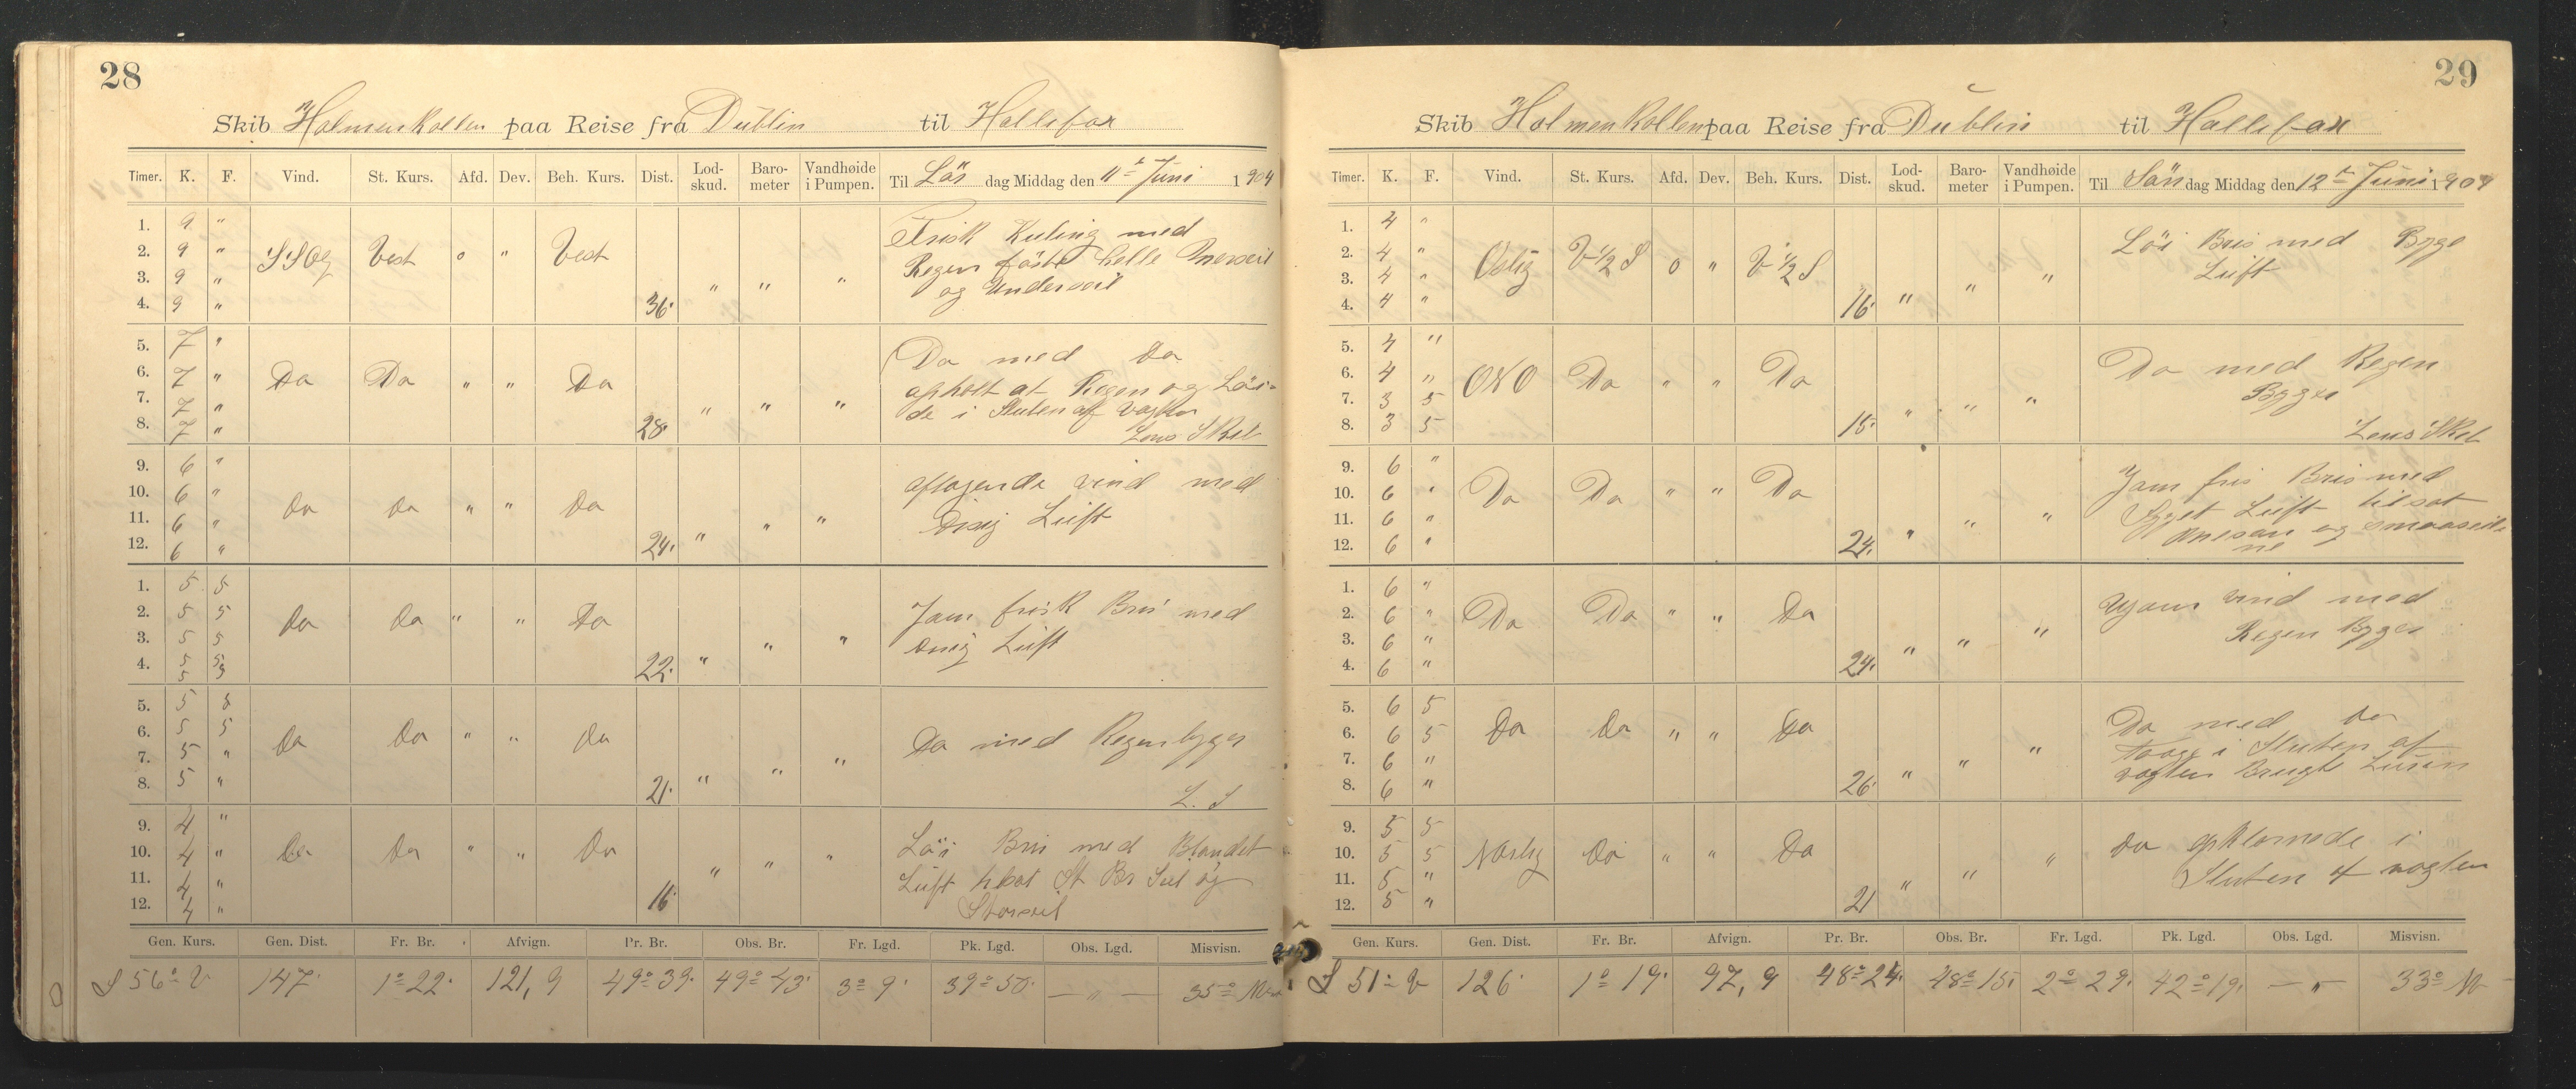 28
Skib Holmenkollen paa Reise fra Dublin til Hallifax
Timer. K. F. Vind. St. Kurs. Afd. Dev. Beh. Kurs. Dist. Lod-skud. Baro-meter Vandhøide i Pumpen. Til Lör dag Middag den 11te Juni 1904
1. 9 "
2. 9 " SSO Vest o " Vest
3. 9 "
4. 9 " 36. " " "
Frisk Kuling med
Regen föste helle Merseil
og Underseil
5. 7 "
6. 7 " Do Do " " Do
7. 7 "
8. 7 " 28. " " "
Do med Do
opholt at Regen og Löi-
de i Sluten af Vagten
Lens Skib
9. 6 "
10. 6 " Do Do " " Do
11. 6 "
12. 6 " 24. " " "
aftagende vind med
Disig Luft
1. 5 5
2. 5 5 Do Do " " Do
3. 5 5
4. 5 5 22. " " "
5 5
Jam frisk Bris med
Disig Luft
5. 5 5
6. 5 5 Do Do " " Do
7. 5 "
8. 5 " 21. " " "
Do med Regenbyger
L. S
9. 4 "
10. 4 " Do Do " " Do
11. 4 "
12. 4 " 16. " " "
Löi Bris med Blandet
Luft St Br Seil og
Storseil
Gen. Kurs. Gen. Dist. Fr. Br. Afvign. Pr. Br. Obs. Br. Fr. Lgd. Pk. Lgd. Obs. Lgd. Misvisn.
S 56° V 147. 1° 22. 121,9 49° 39. 49° 43. 3° 9. 39° 50. — " — 35°
29
Skib Holmenkollen paa Reise fra Dublin til Hallifax
Timer. K. F. Vind. St. Kurs. Afd. Dev. Beh. Kurs. Dist. Lod-skud. Baro-meter Vandhøide i Pumpen. Til Sön dag Middag den 12te Juni 1904
1. 4 "
2. 4 " Ostlig V 1/2 S o " V 1/2 S
3. 4 "
4. 4 " 16. " " "
Löi Bris med Byge
Luft
5. 4 "
6. 4 " ONO Do " " Do
7. 3 5
8. 3 5 15. " " "
Do med Regen
Byger
Lens Skib
9. 6 "
10. 6 " Do Do " " Do
11. 6 "
12. 6 " 24. " " "
Jam fris Bris med
Byget Luft tilsat
Mesan og smaaseile
ne
1. 6 "
2. 6 " Do Do " " Do
3. 6 "
4. 6 " 24. " " "
Ujam vind med
Regen Byger
5. 6 5
6. 6 5 Do Do " " Do
7. 6 "
8. 6 " 26. " " "
Do med Do
Taage i Sluten af
vagten Brugte Luren
9. 5 5
10. 5 5 Nordlig Do " " Do
11. 5 "
12. 5 " 21 " " "
Do opklarnede i
Sluten af vagten
Gen. Kurs. Gen. Dist. Fr. Br. Afvign. Pr. Br. Obs. Br. Fr. Lgd. Pk. Lgd. Obs. Lgd. Misvisn.
S 51° V 126. 1° 19. 97,9 48° 24. 48° 15. 2° 29. 42° 19. — " — 33°